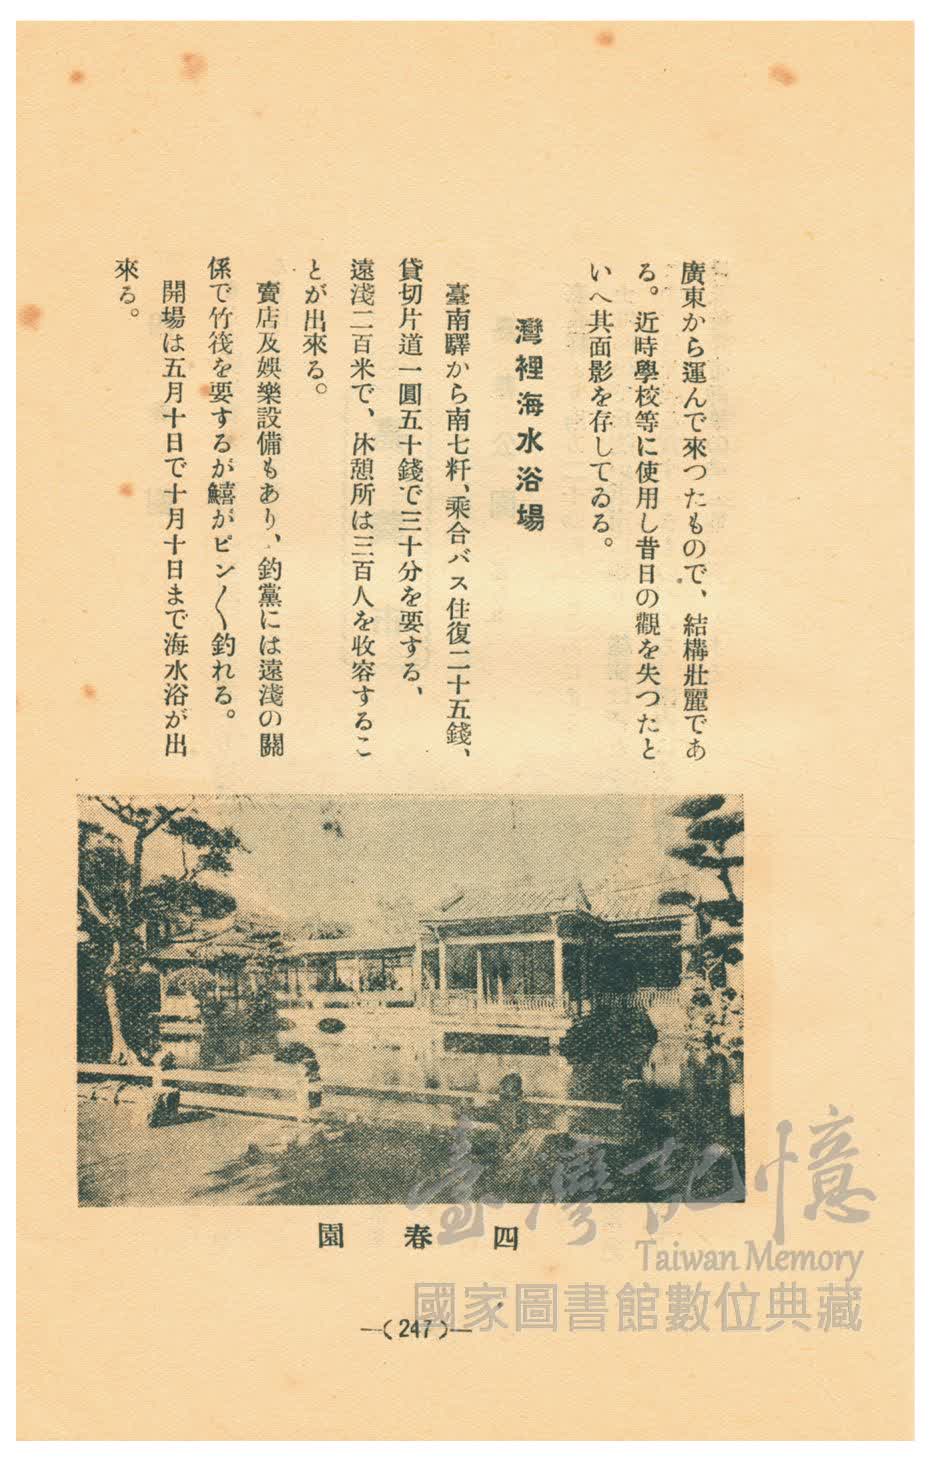 廣東から運んで來つたもので、結構壯麗であ
る。近時學校等に使用し昔日の觀を失つたと
いへ其面影を存してゐる。
灣裡海水浴場
臺南驛から南七粁、乘合バス往復二十五錢、
貸切片道一圓五十錢で三十分を要する、
遠淺二百米で、休憩所は三百人を收容するこ
とが出來る。
賣店及娛樂設備もあり、釣黨には遠淺の關
係で竹筏を要するが鱚がピン〱釣れる。
開場は五月十日で十月十日まで海水浴が出
來る。
園春四
—(247)—
臺灣記憶
Taiwan Memory
國家圖書館數位典藏